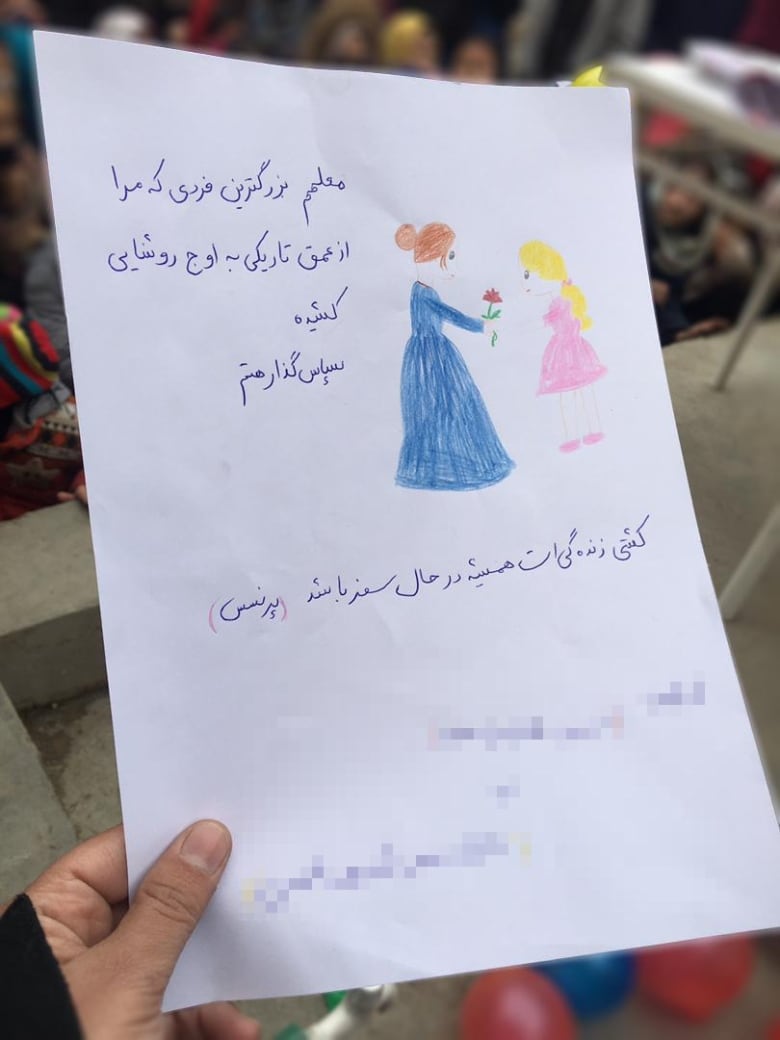 معلمم بزرگترین فردی که مرا
از عمق تاریکی به اوج روشنایی
کشیده
سپاس گذار هستم
کشتی زنده گی ات همیشه در حال سفر باشد (پرنسس)